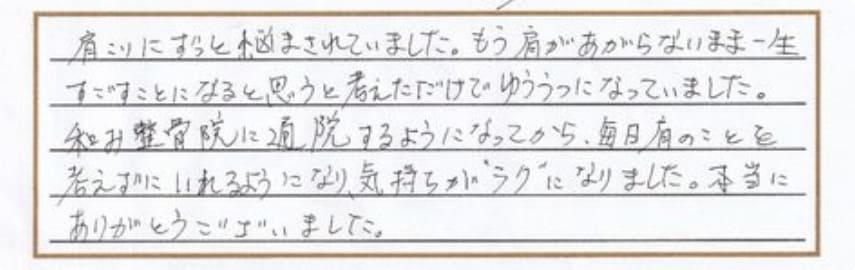 肩こりにずっと悩まされていました。もう肩があがらないまま一生
すごすことになると思うと考えただけでゆううつになっていました。
和み整骨院に通院するようになってから、毎日肩のことを
考えずにいれるようになり、気持ちが"ラク"になりました。本当に
ありがとうございました。